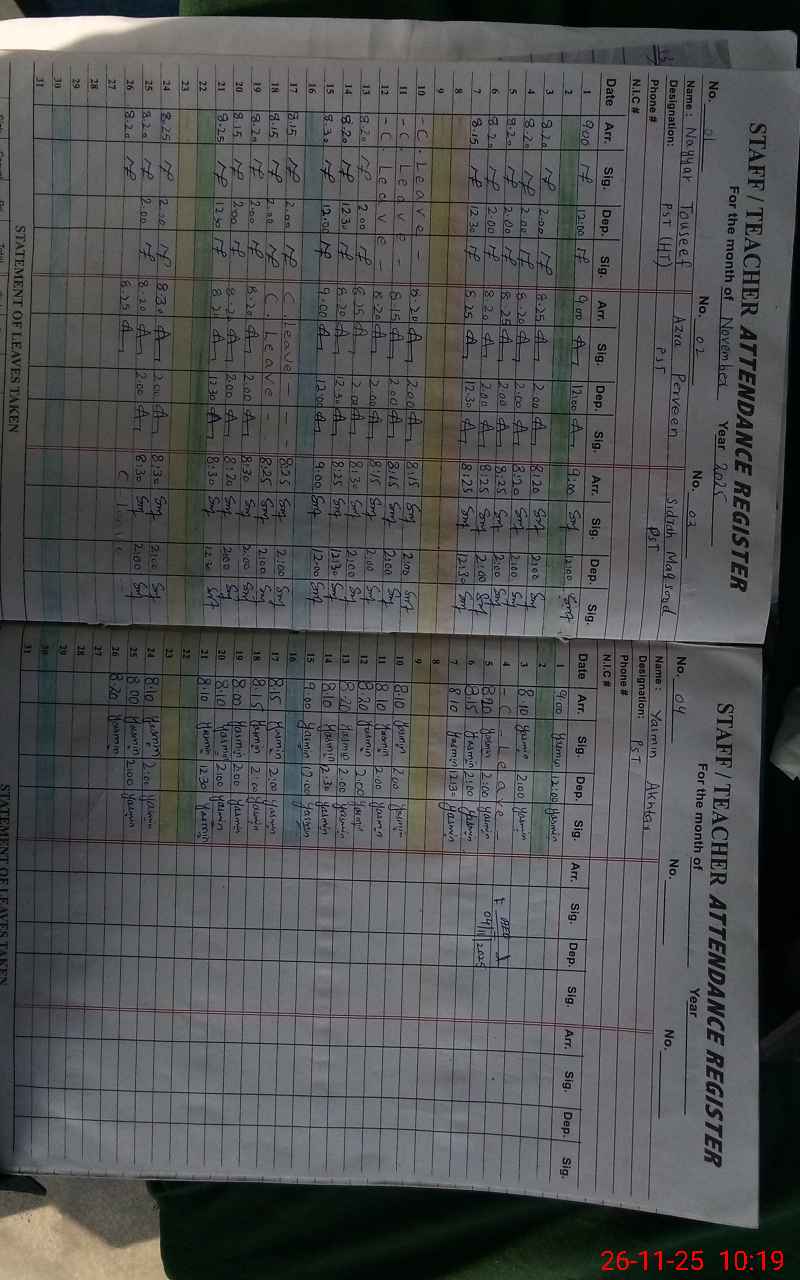 STAFF / TEACHER ATTENDANCE REGISTER
For the month of November Year 2025
No. 01 No. 02 No. 03
Name : Nayyar Touseef Azra Perveen Sidrah Maqsood
Designation: PST (HT) PST PST
Phone #
N.I.C #
Date Arr. Sig. Dep. Sig. Arr. Sig. Dep. Sig. Arr. Sig. Dep. Sig.
1 9:00 12:00 9:00 12:00 9:00 Smf 12:00 Smf
2
3 8.20 2.00 8.25 2.00 8:20 Smf 2:00 Smf
4 8.20 2.00 8.20 2.00 8:20 Smf 2:00 Smf
5 8.20 2.00 8.25 2.00 8:25 Smf 2:00 Smf
6 8.20 2.00 8.20 2.00 8:25 Smf 2:00 Smf
7 8.15 12.30 8.25 12.30 8:25 Smf 12:30 Smf
8
9
10 - C. Leave - 8.20 2.00 8:15 Smf 2:00 Smf
11 - C. Leave - 8.15 2.00 8:15 Smf 2:00 Smf
12 - C Leave - 8.20 2.00 8:15 Smf 2:00 Smf
13 8.20 2.00 8.25 2.00 8:30 Smf 2:00 Smf
14 8.20 12.30 8.20 12.30 8:25 Smf 12:30 Smf
15 8.30 12.00 9.00 12.00 9:00 Smf 12:00 Smf
16
17 8.15 2.00 C. Leave - - - 8:25 Smf 2:00 Smf
18 8.15 2.00 C. Leave - 8:25 Smf 2:00 Smf
19 8.20 2.00 8.20 2.00 8:30 Smf 2:00 Smf
20 8.15 2.00 8.20 2.00 8:20 Smf 2:00 Smf
21 8.25 12.30 8.20 12.30 8:30 Smf 12:30 Smf
22
23
24 8.25 2.00 8.30 2.00 8:30 Smf 2:00 Smf
25 8.20 2.00 8.20 2.00 8:30 Smf 2:00 Smf
26 8.20 8.25 C Leave -
27
28
29
30
31
STATEMENT OF LEAVES TAKEN
STAFF / TEACHER ATTENDANCE REGISTER
For the month of Year
No. 04 No. No.
Name : Yasmin Akhtar
Designation: PST
Phone #
N.I.C #
Date Arr. Sig. Dep. Sig. Arr. Sig. Dep. Sig. Arr. Sig. Dep. Sig.
1 9:00 Yasmin 12:00 Yasmin
2
3 8.10 Yasmin 2:00 Yasmin
4 - C - Leave -
5 8:20 Yasmin 2:00 Yasmin
6 8.15 Yasmin 2:00 Yasmin
7 8.10 Yasmin 12:30 Yasmin
AEO
04/11/2025
8
9
10 8:10 Yasmin 2:00 Yasmin
11 8.10 Yasmin 2:00 Yasmin
12 8:20 Yasmin 2:00 Yasmin
13 8.20 Yasmin 2:00 Yasmin
14 8.10 Yasmin 12:30 Yasmin
15 9.00 Yasmin 12:00 Yasmin
16
17 8.15 Yasmin 2:00 Yasmin
18 8.15 Yasmin 2:00 Yasmin
19 8:00 Yasmin 2:00 Yasmin
20 8.10 Yasmin 2:00 Yasmin
21 8.10 Yasmin 12:30 Yasmin
22
23
24 8.10 Yasmin 2:00 Yasmin
25 8.00 Yasmin 2:00 Yasmin
26 8.20 Yasmin
27
28
29
30
31
STATEMENT OF LEAVES TAKEN
26-11-25 10:19